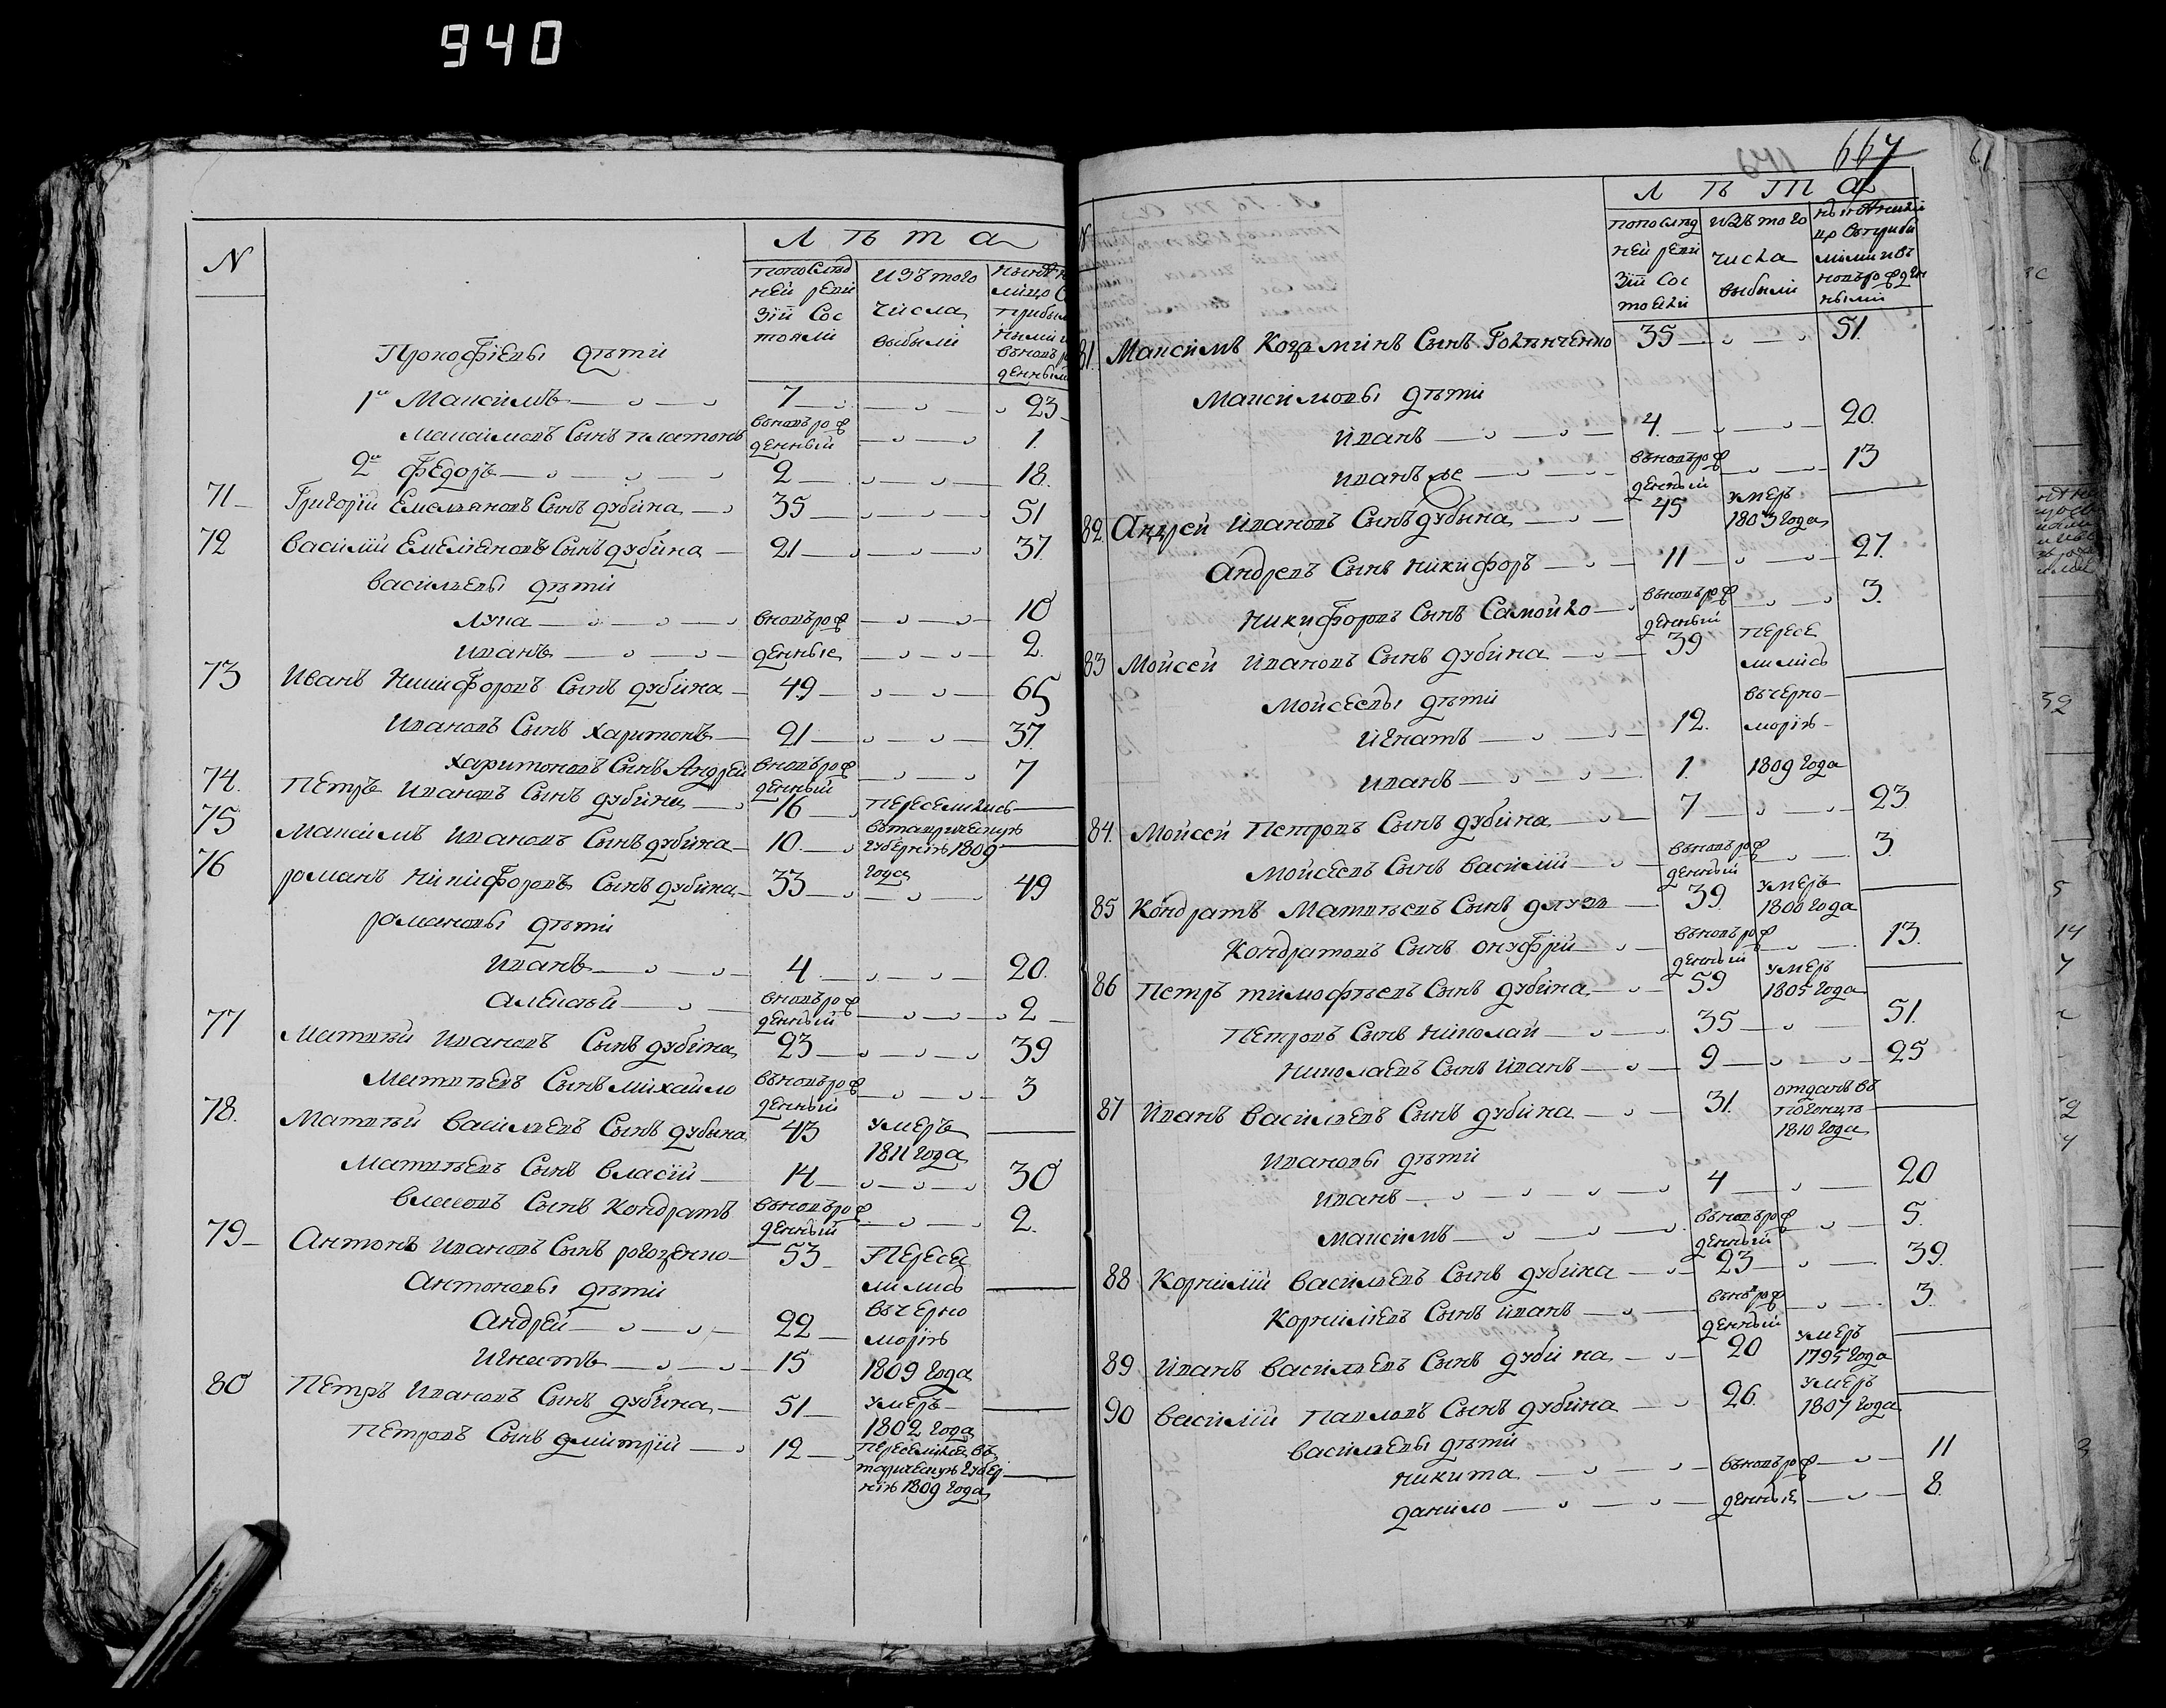 940
N
Л ѣ т а
попослѣд
ней реви
зіи сос
тояли
изъ того
числа
выбыли
Прокофіевы дѣти
1й Максимъ 7 23
Максимовъ сынъ платонъ вновьрож
денный 1
2й Федоръ 2 18
71 Григорій Емельяновъ сынъ дубина 35 51
72 василій Емелиеновъ сынъ дубина 21 37
васильевы дѣти
Лука вновьрож 10
иванъ денные 2
73 Иванъ Никифоровъ сынъ дубина 49 65
ивановъ сынъ харитонъ 21 37
харитоновъ сынъ Андрей вновьрож
денный 7
74 Петръ ивановъ сынъ дубина 16 переселились
75 Максимъ ивановъ сынъ дубина 10 втаврическую
губернію 1809
года
76 романъ Никифоровъ сынъ дубина 33 49
романовы дѣти
иванъ 4 20
алексѣй вновьрож
денный 2
77 Матвѣй ивановъ сынъ дубина 23 39
Матвѣевъ сынъ михайло вновьрож
денный 3
78 Матвѣй васильевъ сынъ дубина 43 умеръ
1811 года
Матвѣевъ сынъ власій 14 30
власовъ сынъ кондратъ вновьрож
денный 2
79 Антонъ ивановъ сынъ 53 пересе
лились
антоновы дѣти
вчерно
андрей 22 морію
игнатъ 15 1809 года
80 Петръ ивановъ сынъ дубина 51 умеръ
1802 года
петровъ сынъ дмитрій 12 переселился въ
таврическую губер
нію 1809 года
667
N
Л ѣ т а
попослѣд
ней реви
зіи сос
тояли
изъ того
числа
выбыли
81 Максимъ Козминъ сынъ 35 51
Максимовы дѣти
иванъ 4 20
иванъ же вновьрож
денный 13
82 Андрей ивановъ сынъ дубина 45 умеръ
1803 года
андреевъ сынъ никифоръ 11 27
никифоровъ сынъ самойло вновьрож
денный 3
83 Мойсей ивановъ сынъ дубина 39 пересе
лились
Мойсеевы дѣти вчерно
игнатъ 12 морію
иванъ 1 1809 года
84 Мойсей Петровъ сынъ дубина 7 23
Мойсеевъ сынъ василій вновьрож
денный 3
85 Кондратъ Матвѣевъ сынъ 39 умеръ
1800 года
Кондратовъ сынъ онуфрій вновьрож
денный 13
86 Петръ тимофѣевъ сынъ дубина 59 умеръ
1805 года
петровъ сынъ николай 35 51
николаевъ сынъ иванъ 9 25
87 Иванъ васильевъ сынъ дубина 31 отданъ въ
погонцы
1810 года
ивановы дѣти
иванъ 4 20
максимъ вновьрож
денный 5
88 Корнилій васильевъ сынъ дубина 23 39
Корниліевъ сынъ иванъ вновьрож
денный 3
89 иванъ васильевъ сынъ дубина 20 умеръ
1795 года
90 василій павловъ сынъ дубина 26 умеръ
1807 года
васильевы дѣти
никита вновьрож 11
данило денные 8